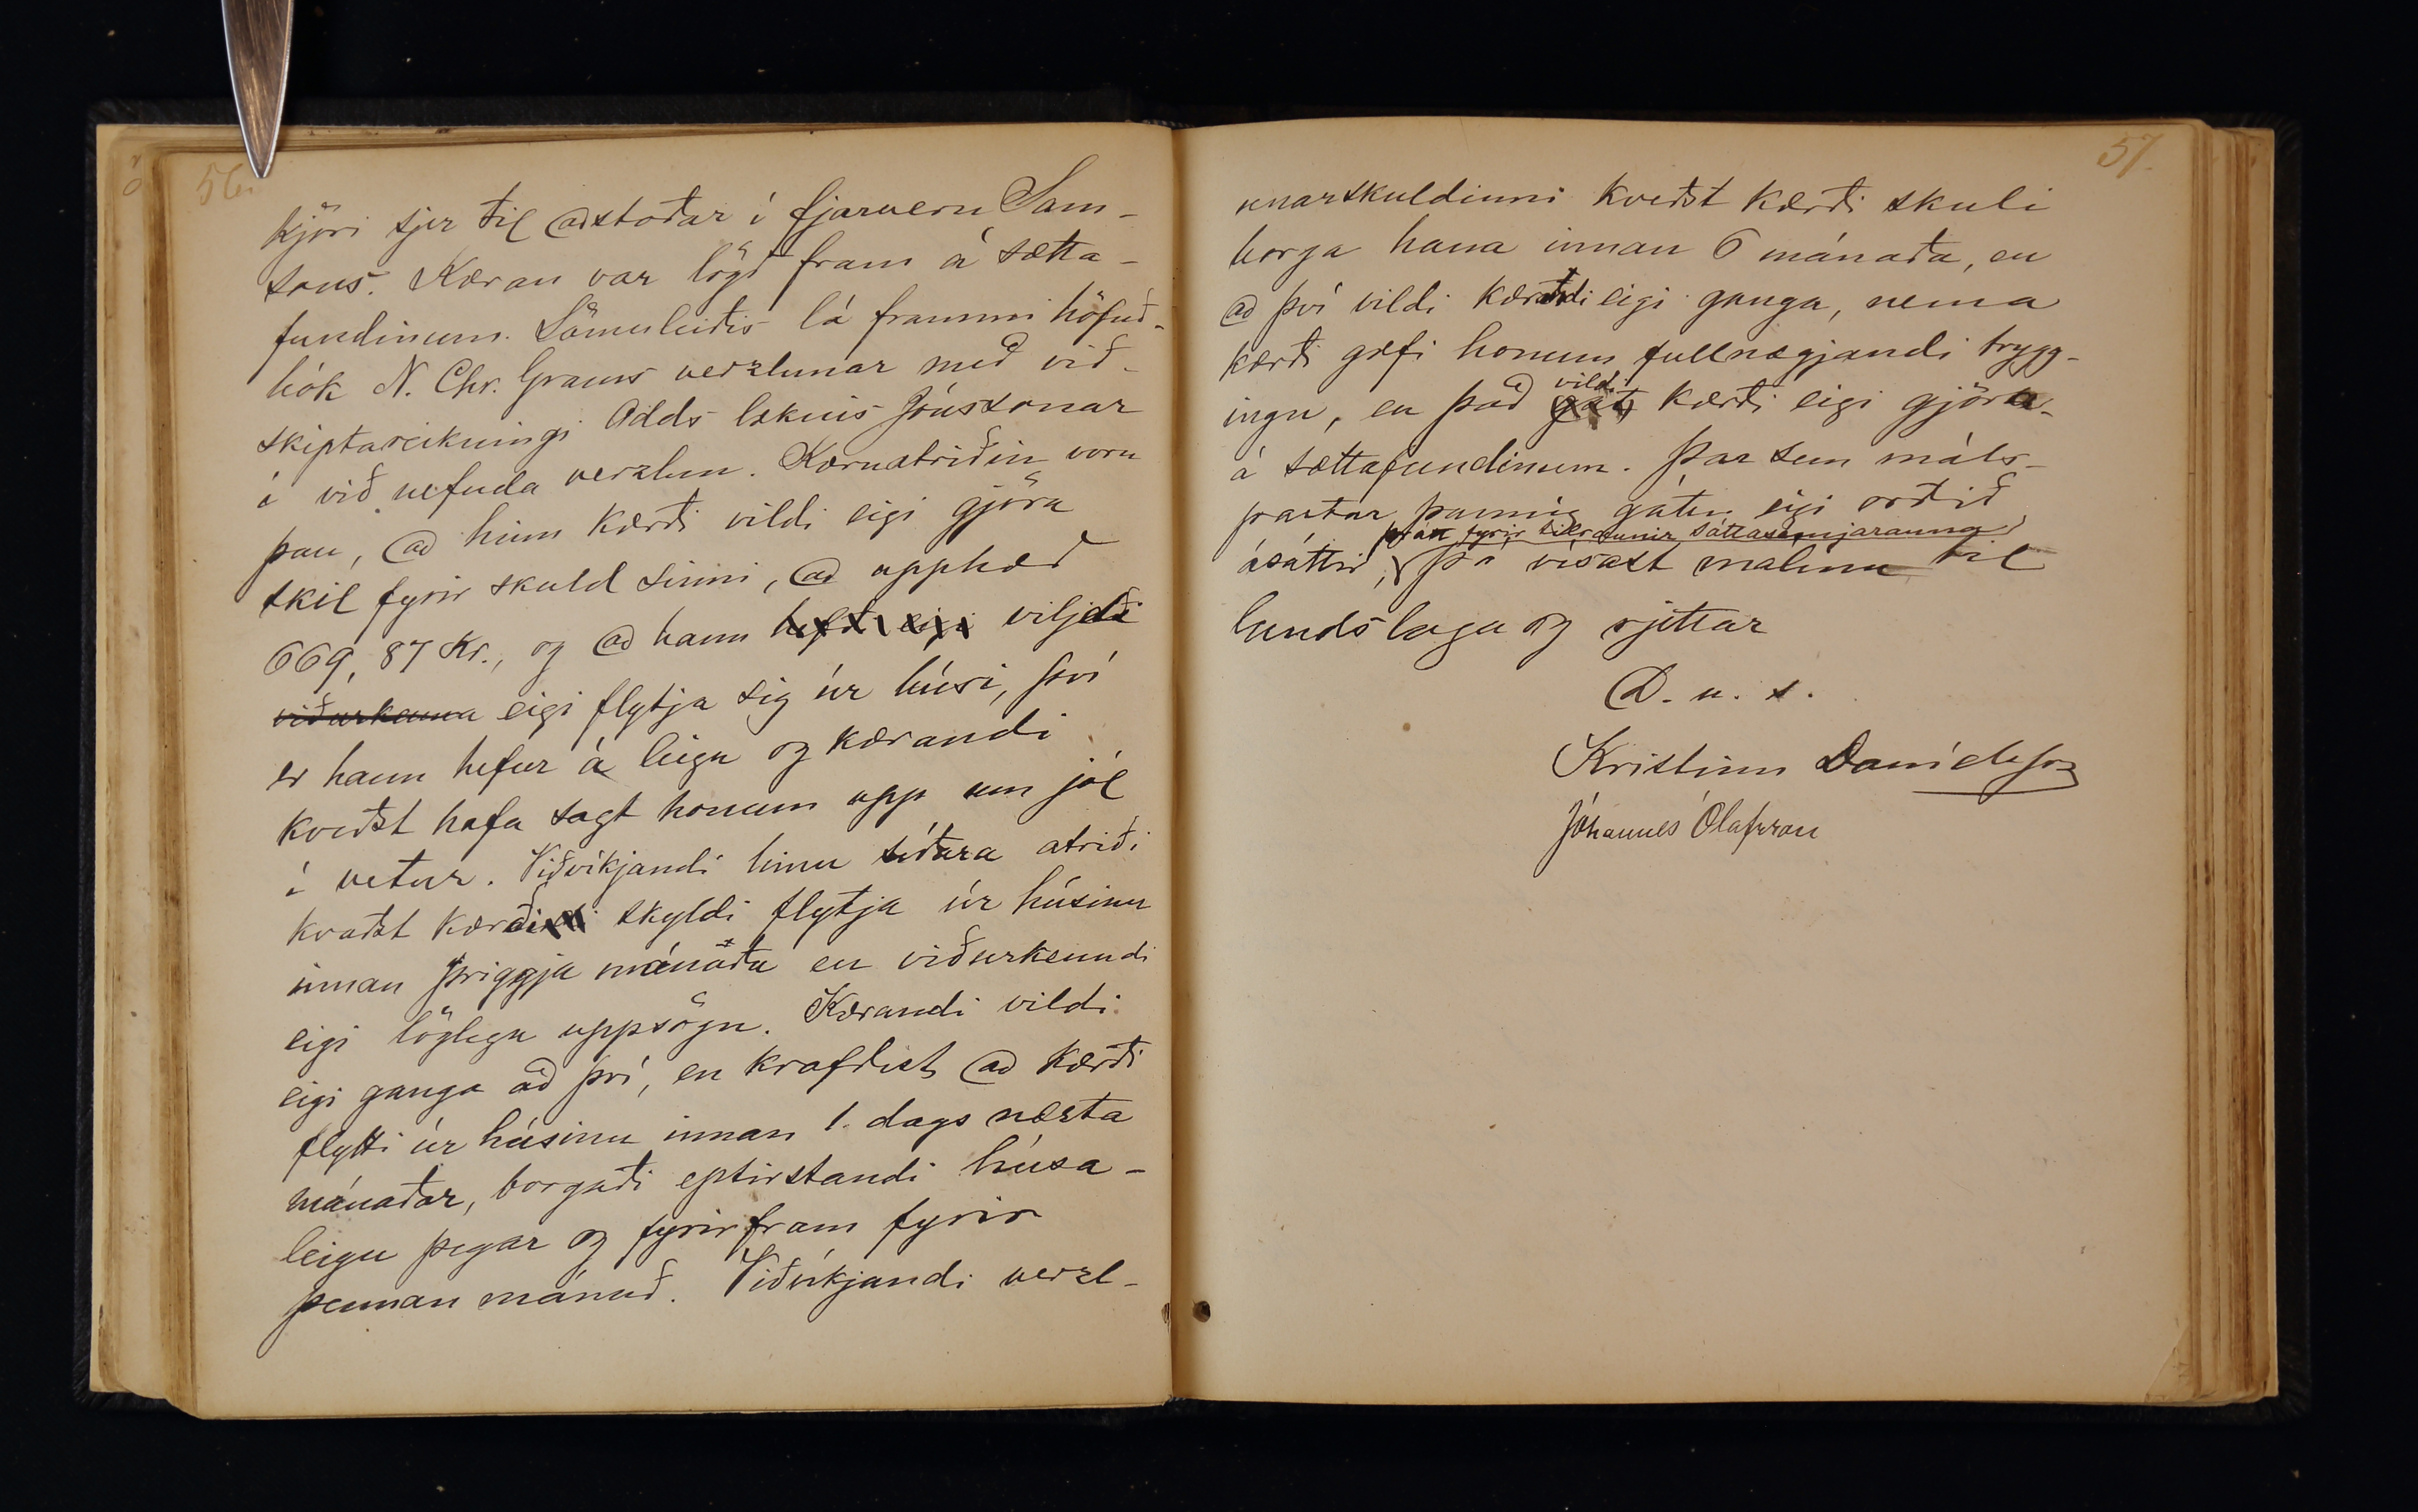 56.
kjöri sjer til aðstoðar í fjarveru Sam-
sons. Kæran var lögð fram á sætta-
fundinum. Sömuleiðis lá frammi höfuð-
bók N. Chr. Grams verzlunar með við-
skiptareikningi Odds læknis Jónssonar
í við nefnda verzlun. Kæruatriðin voru
þau, að hinn kærði vildi eigi gjöra
skil fyrir skuld sinni, að upphæð
669,87 Kr., og að hann hefði eigi viljdi
viðurkenna eigi flytja sig úr húsi, því
er hann hefur á leigu og kærandi
kveðst hafa sagt honum upp um jól
í vetur. Viðvíkjandi hinu síðara atriði
kvaðst kærði skyldi flytja úr húsinu
innan þriggja mánaða en viðurkenndi
eigi löglega uppsögn. Kærandi vildi
eigi ganga að því, en krafðist að kærði
flytti úr húsinu innan 1. dags næsta
mánaðar, borgaði eptirstandi húsa-
leigu þegar og fyrirfram fyrir
þennan mánuð. Viðvíkjandi verzl-
57.
unarskuldinni kveðst kærði skuli
borga hana innan 6 mánaða, en
að því vildi kærandi eigi ganga, nema
kærði gæfi honum fullnægjandi trygg-
vildi
ingu, en það gat kærði eigi gjöra
á sættafundinum. Þar sem máls-
partar þannig gátu eigi orðið
þrátt fyrir tilraunir sáttasemjaranna,
ásáttir, þá vísast málinu til
landslaga og rjettar
D. u. s.
Kristinn Daníelsson
Jóhannes Ólafsson